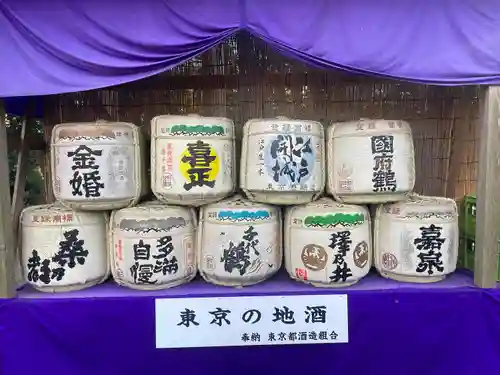 金婚
喜正
江戸開城
国府鶴
桑乃都
多満自慢
千代鶴
澤乃井
嘉泉
東京の地酒
奉納 東京都酒造組合